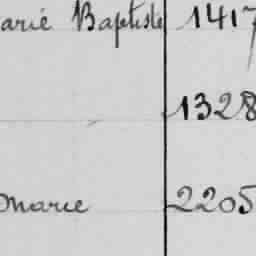 arié Baptiste 1417
1328
onarie 2205